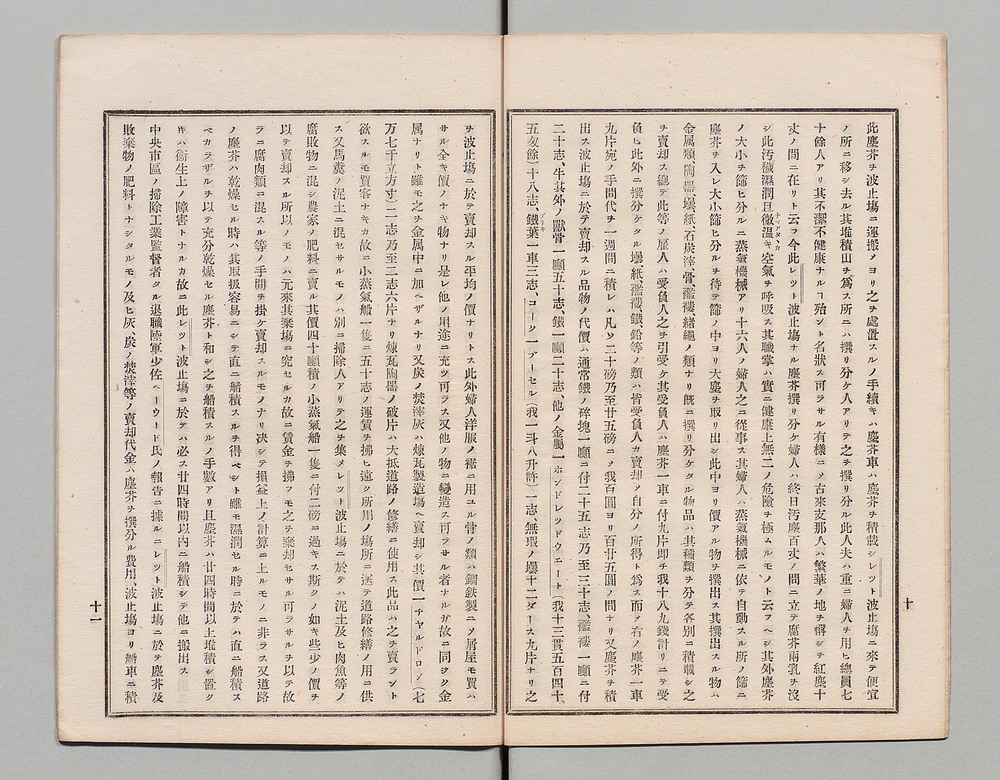 此塵芥ヲ波止塲ニ運搬ノヨリ之ヲ處置スルノ手續キハ塵芥車ハ塵芥ヲ積載シレツト波止塲ニ來テ便宜
ノ所ニ移シ去ル其堆積山ヲ爲ス所ニハ撰リ分ケ人アリテ之ヲ撰リ分ル此人夫ハ重ニ婦人ヲ用ヒ總員七
十餘人アリ其不潔不健康ナルヿ殆ント名狀ス可ラサル有樣ニメ古來支那人ハ繁華ノ地ヲ稱シテ紅塵十
丈ノ間ニ在リト云フ今此レツト波止塲ナル塵芥撰リ分ケ婦人ハ終日汚塵百丈ノ間ニ立テ腐芥兩乳ヲ沒
シ此汚穢濕潤且微温キ空氣ヲ呼吸ス其職掌ハ實ニ健康上無二ノ危險ヲ極ムルモノト云フヘシ其外塵芥
ノ大小ヲ篩ヒ分ルニ蒸氣機械アリ十六人ノ婦人之ニ從事ス其婦人ハ蒸氣機械ニ依テ自動スル所ノ篩ニ
塵芥ヲ入レ大小篩ヒ分ルヲ待テ篩ノ中ヨリ大塵ヲ取リ出シ此中ヨリ價アル物ヲ撰出ス其撰出スル物ハ
金属類、陶器、壜、紙、石炭滓、骨、襤褸、緒繩ノ類ナリ既ニ撰リ分ケタル物品ハ其種類ヲ分テ各別ニ積載シ之
ヲ賣却ス總テ此等ノ雇人ハ受負人之ヲ引受ケ其受負人ハ塵芥一車ニ付九片即チ我十八九錢計リニテ受
負ヒ此外ニ撰分ケタル壜、紙、襤褸、鐵、鉛等ノ類ハ皆受負人カ賣却ノ自分ノ所得ト爲ス而ノ右ノ塵芥一車
九片宛ノ手間代ヲ一週間ニ積レハ凡ソ二十磅乃至廿五磅ニノ我百圓ヨリ百廿五圓ノ間ナリ又塵芥ヲ積
出ス波止塲ニ於テ賣却スル品物ノ代價ハ通常鐵ノ碎塊一噸ニ付二十五志乃至三十志、襤褸一噸ニ付
二十志、牛其外ノ獸骨一噸五十志、鐵一噸二十志、他ノ金屬一ホンドレツドウエート(我十三貫五百四十
五匁餘)十八志、鐵葉一車三志、コーク一アーセル(我一斗八升許)一志、無瑕ノ壜十二ダース九片ナリ之
ヲ波止塲ニ於テ賣却スル平均ノ價ナリトス此外婦人洋服ノ裾ニ用ユル骨ノ類ハ鋼鉄製ニノ屑屋モ買ハ
サル全キ價ノナキ物ナリ是レ他ノ用途ニ充ツ可ラス又他ノ物ニ變造ス可ラサル者ナルガ故ニ同ヲク金
属ナリト雖モ之ヲ金属中ニ加ヘザルナリ又炭ノ焚滓灰ハ煉瓦製造塲ヘ賣却シ其價一チヤルドロノ(七
万七千立方寸)二志乃至三志六片ナリ煉瓦陶器ノ破片ハ大抵道路ノ修繕ニ使用ス此品ハ之ヲ賣ラント
欲スルモ買客ナキカ故ニ小蒸氣船一隻ニ五十志ノ運賃ヲ拂ヒ遠ク所用ノ塲所ニ送テ道路修繕ノ用ニ供
ス又馬糞ノ泥土ニ混セサルモノハ別ニ掃除人アリテ之ヲ集メレツト波止塲ニ於テハ泥土及ヒ肉魚等ノ
腐敗物ニ混シ農家ノ肥料ニ賣ル其價四十噸積ノ小蒸氣船一隻ニ付二磅ニ過キス斯クノ如キ些少ノ價ヲ
以テ賣却スル所以ノモノハ元來其棄塲ニ究セルカ故ニ賃金ヲ拂フモ之ヲ棄却セサル可ラサルヲ以テ故
ラニ腐肉類ニ混スル等ノ手間ヲ掛ケ賣却スルモノナリ决シテ損益上ノ計算ニ上ルモノニ非ラス又道路
ノ塵芥ハ乾燥セル時ハ其取扱容易ニシテ直ニ船積スルヲ得ベシト雖モ濕潤セル時ニ於テハ直ニ船積ス
ベカラザルヲ以テ充分乾燥セル塵芥ト和シ之ヲ船積スルノ手數アリ且塵芥ハ廿四時間以上堆積シ置ク
キハ衛生上ノ障害トナルカ故ニ此レツト波止塲ニ於テハ必ス廿四時間以内ニ船積シテ他ニ搬出ス
中央市區ノ掃除工業監督者タル退職陸軍少佐ヘーウードト氏ノ報告ニ據ルニレツト波止塲ニ於テ塵芥及
敗棄物ノ肥料トナシタルモノ及ヒ灰、炭ノ焚滓等ノ賣却代金ハ塵芥ヲ撰分ル費用、波止塲ヨリ艀車ニ積
十
十一